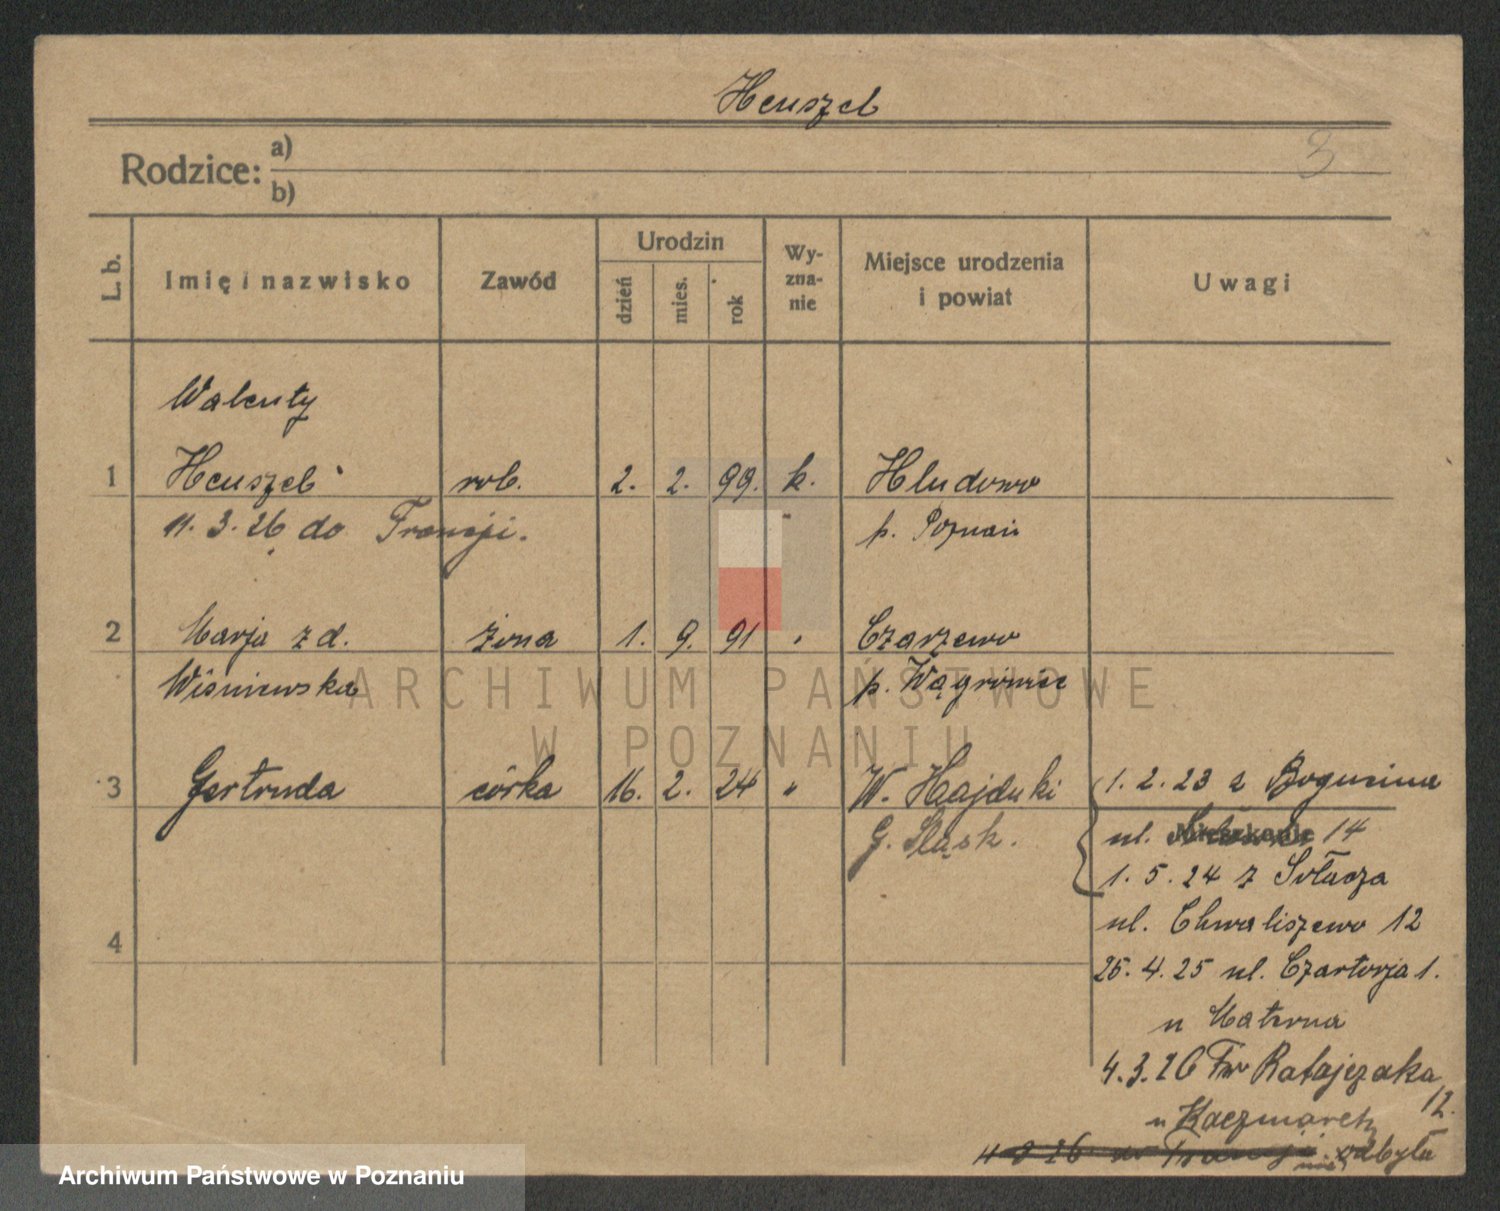 Heuszel
Rodzice: a)
b)
3
L. b. Imię i nazwisko Zawód Urodzin dzień mies. rok Wyznanie Miejsce urodzenia i powiat Uwagi
Walenty
1 Heuszel rob. 2. 2. 99. k. Hludowo
11. 3. 26 do Francji. p. Poznań
2 Marja z d. żona 1. 9. 91 " Czarzewo
Wiśniewska p. Wągrowiec
3 Gertruda córka 16. 2. 24 " W. Hajduki
G. Śląsk.
1. 2. 23 z Bogucina
ul. Mieszkanie 14
1. 5. 24 z Sołacza
ul. Chwaliszewo 12
4
26. 4. 25 ul. Czartorja 1.
u Materna
4. 3. 26 Fr Ratajczaka
12.
u Kaczmarek
11 3 26 do Francji nie odbyła
ARCHIWUM PAŃSTWOWE
W POZNANIU
Archiwum Państwowe w Poznaniu